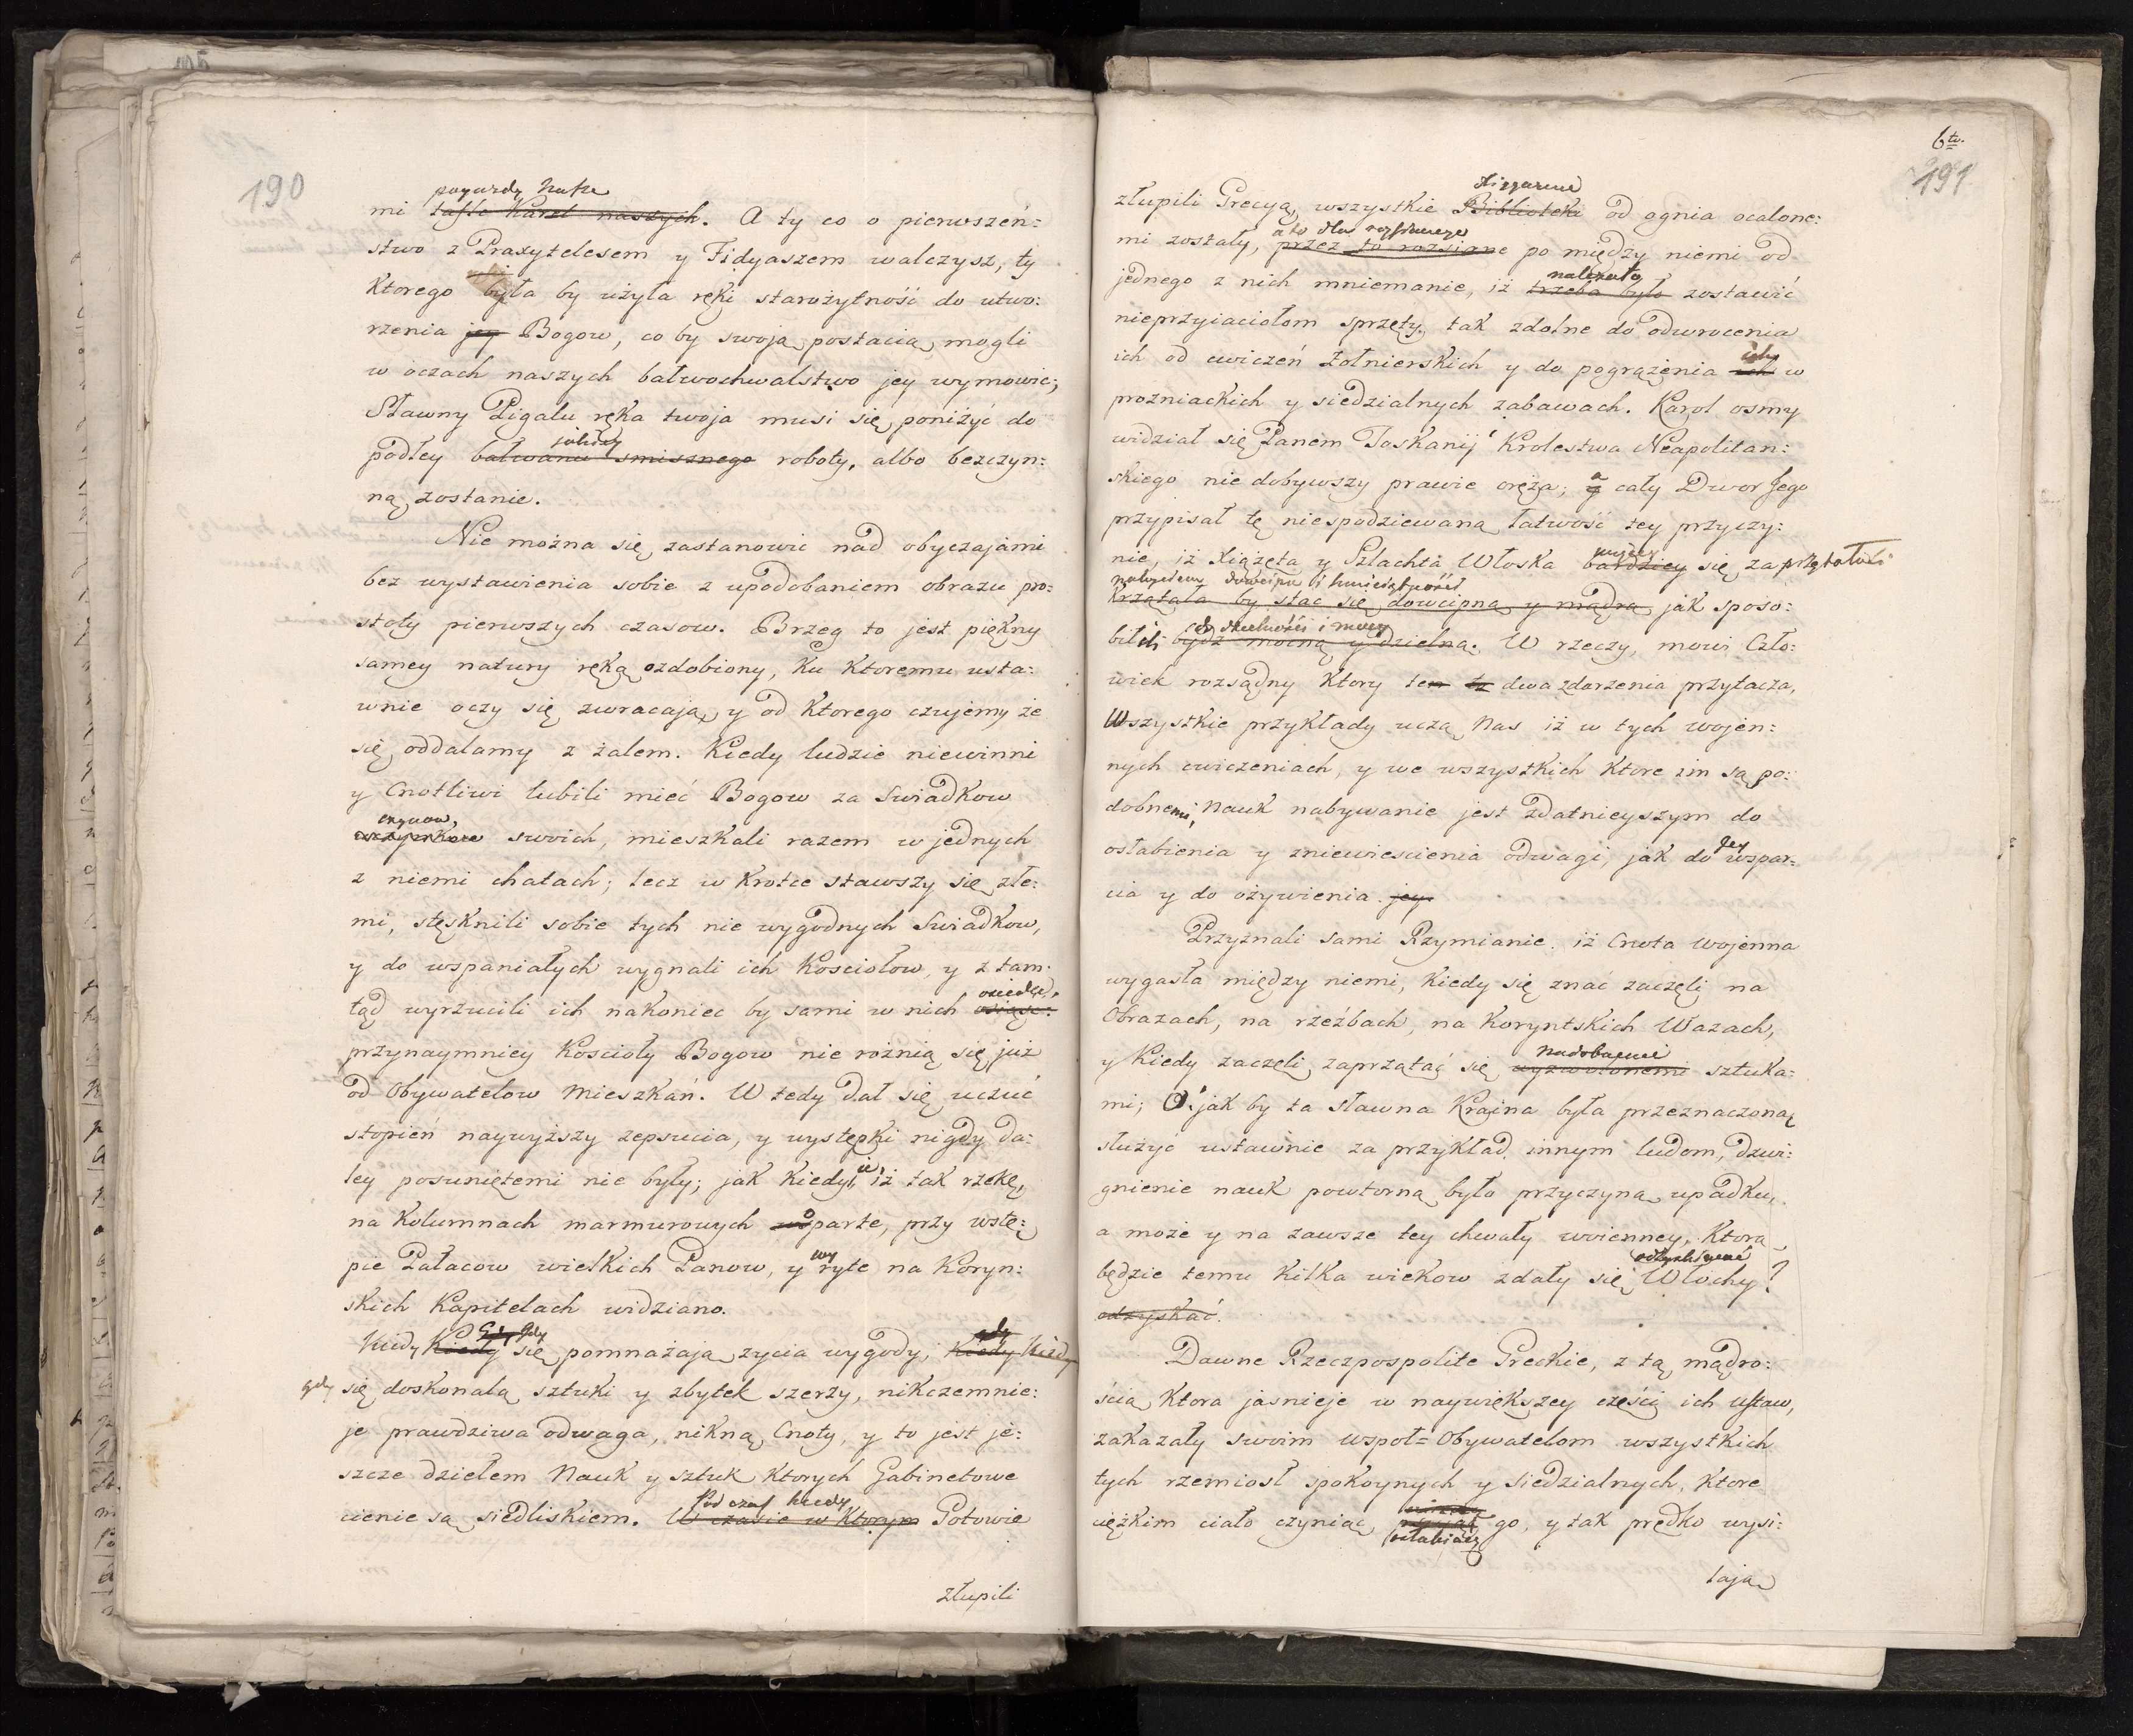 190
mi tafle Karet naszych. A ty co o pierwszeń:
stwo z Praxytelesem y Fidyaszem walczysz, ty
Ktorego była by użyła ręki starożytność do utwo:
rzenia jey Bogow, co by swoją postacią mogli
w oczach naszych bałwochwalstwo jey wymowic;
Sławny Pigalu ręka twoja musi się poniżyć do
podłey bałwanu smisznego roboty, albo bezczyn:
ną zostanie.
Nie można się zastanowic nad obyczajami
bez wystawienia sobie z upodobaniem obrazu pro:
stoty pierwszych czasow. Brzeg to jest piękny
samey natury ręką ozdobiony, Ku Ktoremu usta:
wnie oczy się zwracają, y od Ktorego czujemy że
się oddalamy z żalem. Kiedy ludzie niewinni
y Cnotliwi lubili mieć Bogow za Swiadkow
czynow,
swoich, mieszkali razem w jednych
z niemi chatach; lecz w Krotce stawszy się złe:
mi, stęsknili sobie tych nie wygodnych Swiadkow,
y do wspaniałych wygnali ich Kosciołow, y z tam:
tąd wyrzucili ich nakoniec by sami w nich osiąść.
przynaymniey Kościoły Bogow nie rożnią się już
od Obywatelow Mieszkań. W tedy dał się uczuć
stopień naywyższy zepsucia, y występki nigdy da:
ley posuniętemi nie były; jak Kiedy je, iż tak rzekę,
na Kolumnach marmurowych oparte, przy wstę:
pie Pałacow wielkich Panow, y wyryte na Koryn:
skich Kapitelach widziano.
gdy
Kiedy Kiedy się pomnażają zycia wygody, Kiedy Kiedy
gdy się doskonalą sztuki y zbytek szerzy, nikczemnie:
je prawdziwa odwaga, nikną Cnoty, y to jest je:
szcze dziełem Nauk y sztuk Ktorych Gabinetowe
Pod czas kiedy
cienie są siedliskiem. W czasie w Ktorym Gotowie
złupili
6to.
191
Xięgarnie
złupili Grecyą, wszystkie Biblioteki od ognia ocalone:
a to dla
mi zostały, przez to rozsiane po między niemi od
należało
jednego z nich mniemanie, iż trzeba było zostawić
nieprzyiaciołom sprzęty tak zdolne do odwrocenia
ich od cwiczeń żołnierskich y do pogrążenia ich w
prozniackich y siedzialnych zabawach. Karol osmy
widział się Panem Toskanij Krolestwa Neapolitan:
skiego nie dobywszy prawie oręża; a cały Dwor Jego
przypisał tę niespodziewaną łatwość tey przyczy:
nie, iż Xiążęta y Szlachta Włoska bardziey się za
nabyciem dowcipu i
krzątała by stac się dowcipną y mądrą, jak sposo:
do dzielności i mocy
biłi bydz mocną y dzielną. W rzeczy, mowi Czło:
wiek rozsądny Ktory te dwa zdarzenia przytacza,
Wszystkie przykłady uczą Nas iż w tych wojen:
nych cwiczeniach, y we wszystkich Ktore im są po:
dobnemi, Nauk nabywanie jest zdatnieyszym do
osłabienia y zniewiescienia odwagi, jak do Jey wspar:
cia y do ożywienia jey.
Przyznali sami Rzymianie, iż Cnota wojenna
wygasła między niemi, Kiedy się znać zaczęli na
Obrazach, na rzeźbach, na Koryntskich Wazach,
Nadobnemi
y Kiedy zaczęli zaprzątać się wyzwolonemi sztuka:
mi; O! jak by ta sławna Kraina była przeznaczoną
służyć ustawnie za przykład innym ludom, dzwi:
gnienie nauk powtorną było przyczyną upadku,
a może y na zawsze tey chwały woienney, Ktorą
będzie temu Kilka wiekow zdały się Włochy?
odzyskać.
Dawne Rzeczpospolite Greckie, z tą mądro:
ścią Ktora jasnieje w naywiększey części ich ustaw,
zakazały swoim wspoł=Obywatelom wszystkich
tych rzemiosł spokoynych y siedzialnych, Ktore
ciężkim ciało czyniąc, osłabiaią go, y tak prędko wysi:
lają